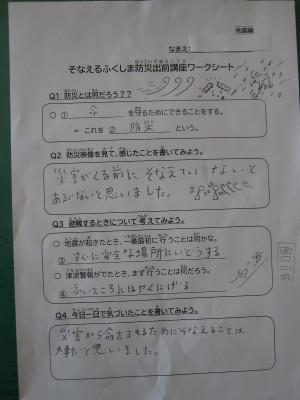 地震編
なまえ:
そなえるふくしま防災出前講座ワークシート
Q1 防災とは何だろう??
○ ① 命 を守るためにできることをする。
= これを ② 防災 という。
Q2 防災映像を見て、感じたことを書いてみよう。
災害がくる前にそなえていないと
あぶないと思いました。
Q3 避難するときについて考えてみよう。
○ 地震が起きたとき、一番最初に行うことは何かな。
③ すぐに安全な場所にいどうする
○ 津波警報がでたとき、まず行うことは何だろう。
④ 高いところにはやくにげる
Q4 今日一日で気づいたことを書いてみよう。
災害から命をまもるためにそなえることは
大事だと思いました。